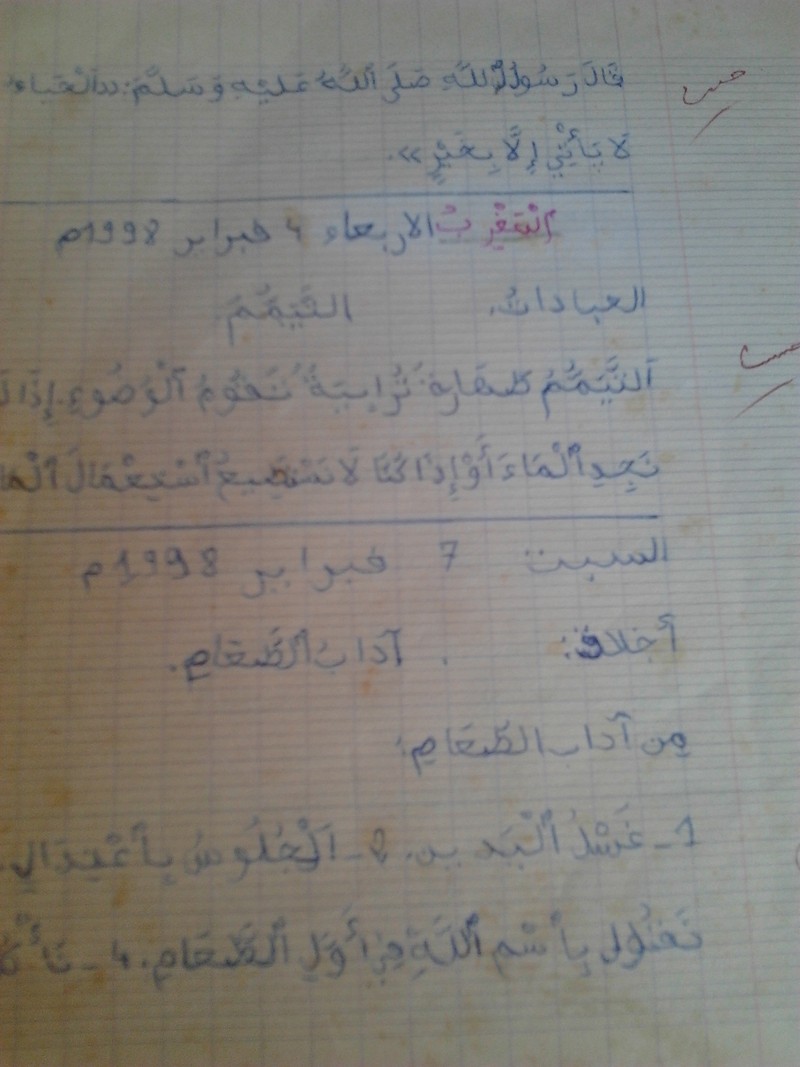 قَالَ رَسُولُ اللَّهِ صَلَّى ٱللَّهُ عَلَيْهِ وَسَلَّمَ: «ٱلْحَيَاءُ
لَا يَأْتِي إِلَّا بِخَيْرٍ».
حسن
ٱلْمَغْرِبُ الاربعاء 4 فبراير 1998م
العبادات. التَّيَمُّمُ
ٱلتَّيَمُّمُ طَهَارَةٌ تُرَابِيَةٌ تَعُومُ ٱلْوُضُوءِ إِذَا
حسن
نَجِدِ ٱلْمَاءَ أَوْ إِذَا كُنَّا لَا نَسْتَطِيعُ ٱسْتِعْمَالَ ٱلْمَا
السبت 7 فبراير 1998م
أخلاق: . آدَابُ ٱلطَّعَامِ.
مِن آدَابِ الطَّعَامِ:
1- غَسْلُ ٱلْيَدَيْنِ. 2- ٱلْجُلُوسُ بِٱعْتِدَالٍ.
نَقُولُ بِٱسْمِ ٱللَّهِ فِي أَوَّلِ ٱلطَّعَامِ. 4-